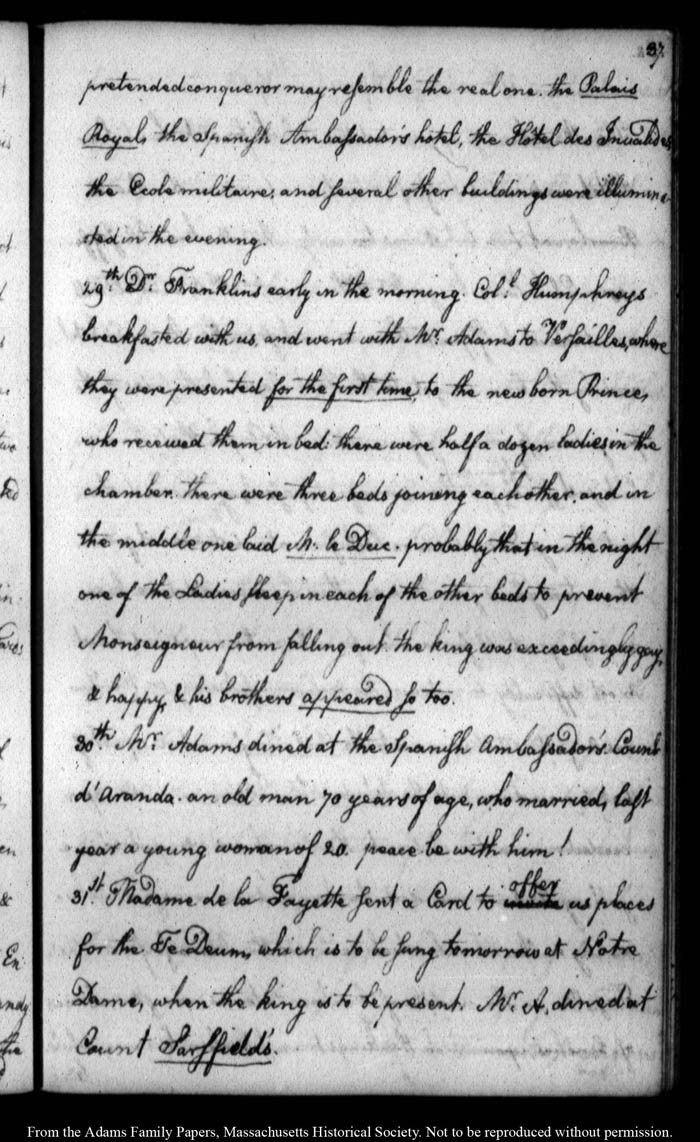 37.
pretended conqueror may resemble the real one. the Palais
Royal, the Spanish Ambassador's hotel, the Hôtel des Invalides,
the Ecole militaire, and several other buildings were illumina-
ted in the evening.
29th. Dr. Franklins early in the morning. Coll. Humphreys
breakfasted with us, and went with Mr. Adams to Versailles, where
they were presented for the first time, to the new born Prince,
who received them in bed: there were half a dozen ladies in the
chamber. there were three beds joining each other, and in
the middle one laid M. le Duc. probably that in the night
one of the Ladies sleep in each of the other beds to prevent
Monseigneur from falling out. the king was exceedingly gay,
& happy, & his brothers appeared so too.
30th. Mr. Adams dined at the Spanish Ambassador's. Count
d'Aranda. an old man 70 years of age, who married, last
year a young woman of 20. peace be with him!
31st. Madame de la Fayette sent a Card to offer us places
for the Te Deum, which is to be sung tomorrow at Notre
Dame, when the king is to be present. Mr. A. dined at
Count Sarsfield's.
From the Adams Family Papers, Massachusetts Historical Society. Not to be reproduced without permission.